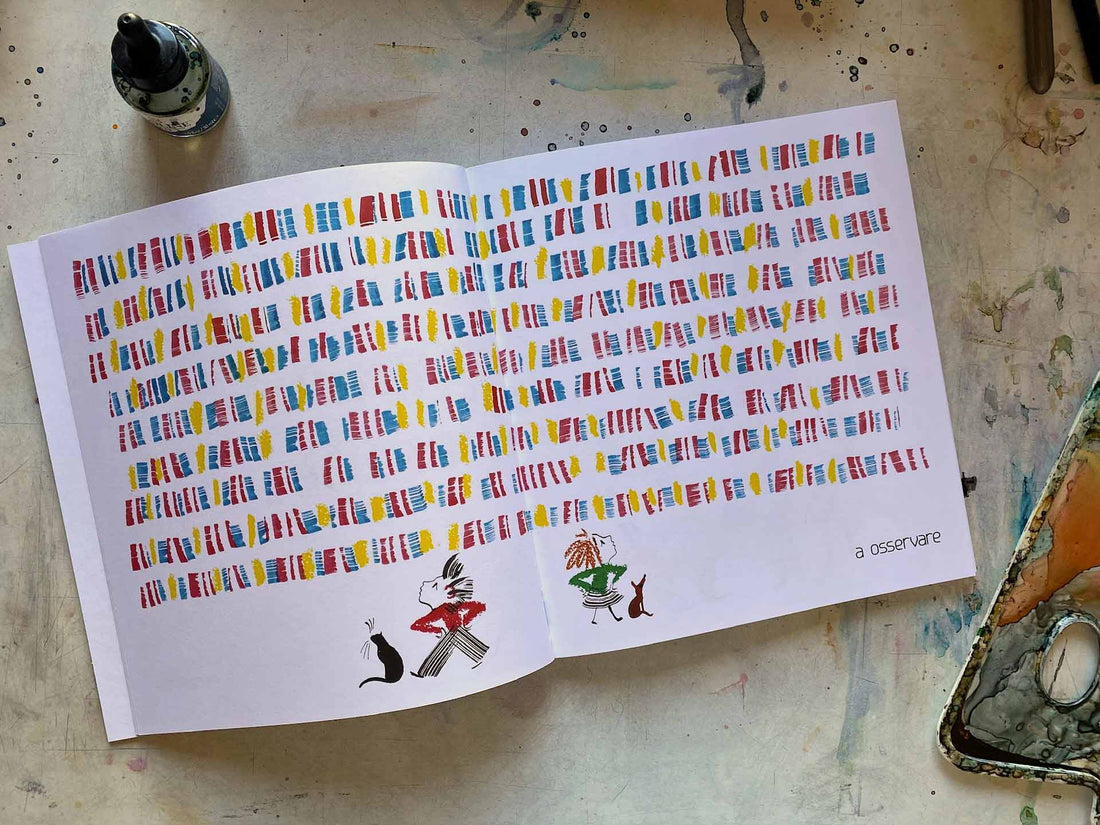 a osservare